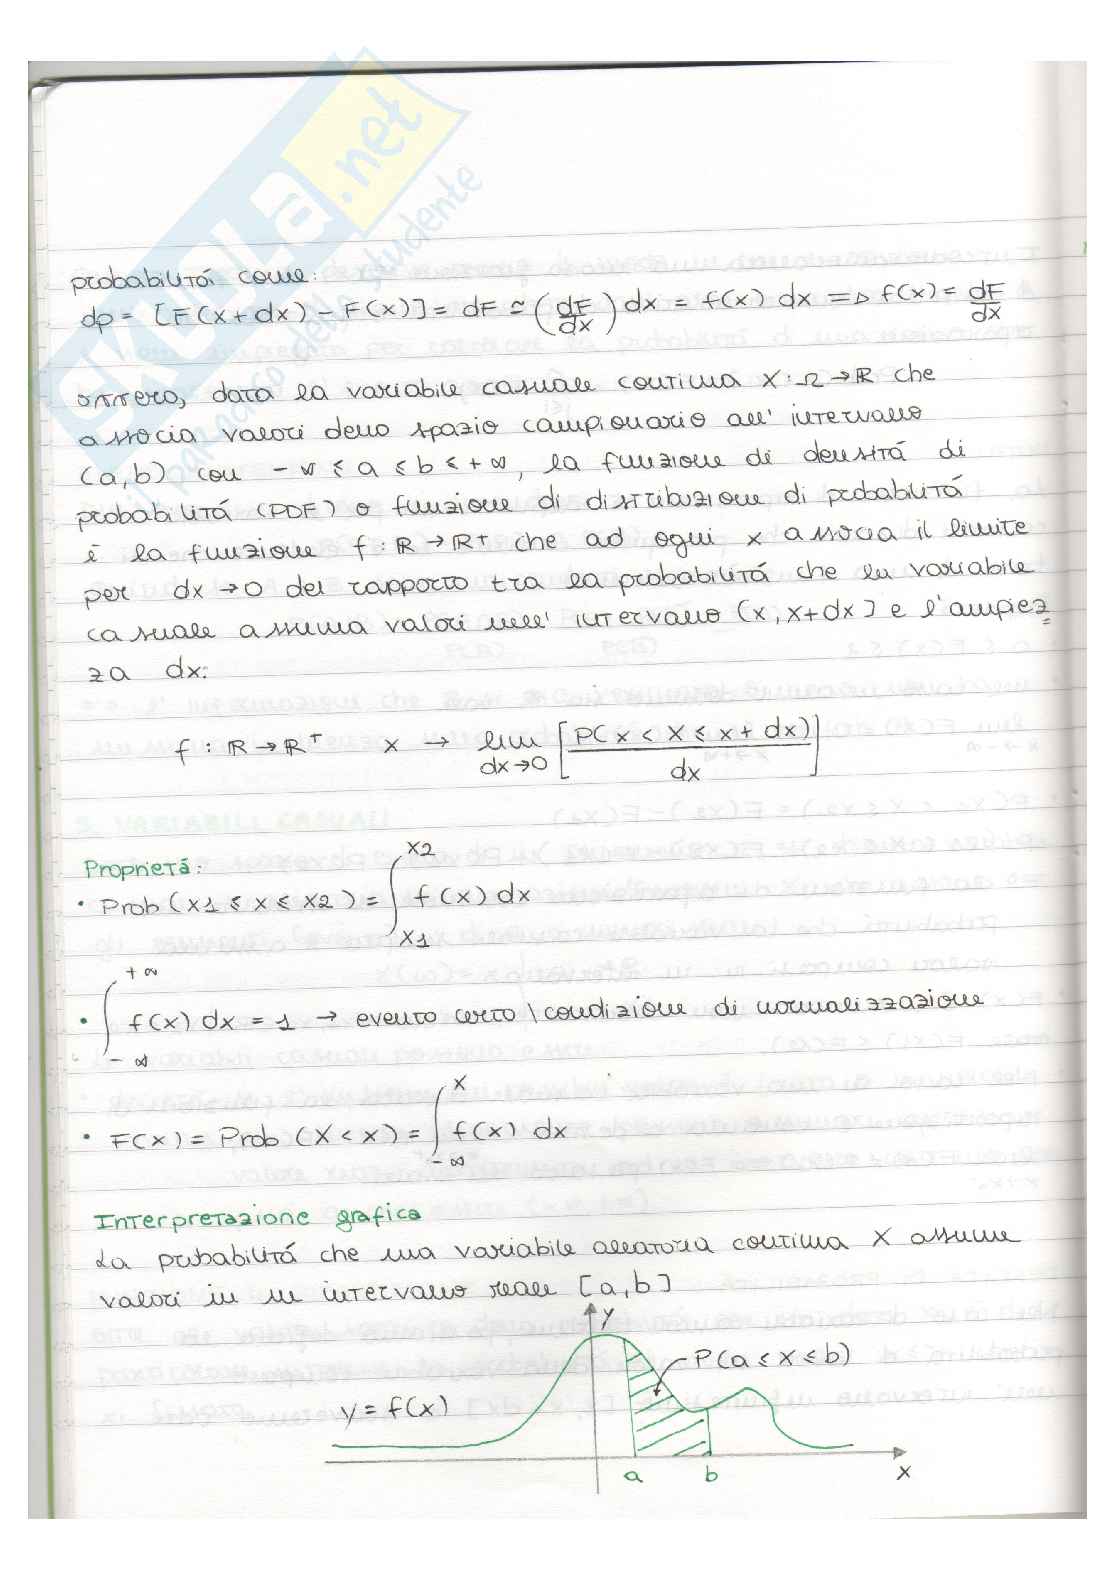 SKUOLA.net
il paradiso dello studente
probabilitá come:
dp = [F(x+dx) - F(x)] = dF ≃ (dF/dx) dx = f(x) dx => f(x) = dF/dx
ovvero, data la variabile casuale continua X: Ω → ℝ che
associa valori dello spazio campionario all' intervallo
(a,b) con -∞ ≤ a ≤ b ≤ +∞, la funzione di densitá di
probabilitá (PDF) o funzione di distribuzione di probabilitá
é la funzione f: ℝ → ℝ⁺ che ad ogni x associa il limite
per dx → 0 del rapporto tra la probabilitá che la variabile
casuale assuma valori nell' intervallo (x, x+dx] e l'ampiez
za dx:
f : ℝ → ℝ⁺ x → lim dx→0 [P(x < X ≤ x + dx) / dx]
Proprietá:
• Prob (x1 ≤ x ≤ x2) = ∫ x1 x2 f(x) dx
• ∫ -∞ +∞ f(x) dx = 1 → evento certo \ condizione di normalizzazione
• F(x) = Prob (X < x) = ∫ -∞ x f(x) dx
Interpretazione grafica
La probabilitá che una variabile aleatoria continua X assume
valori in un intervallo reale [a,b]
y
P(a ≤ X ≤ b)
y = f(x)
a b x